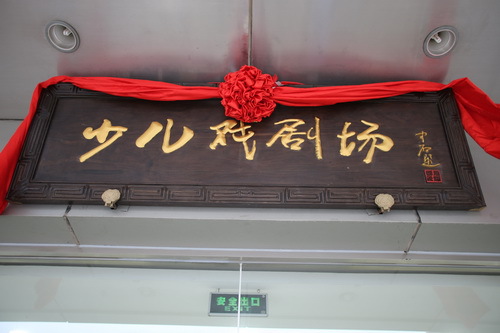 少儿戏剧场
安全出口
EXIT